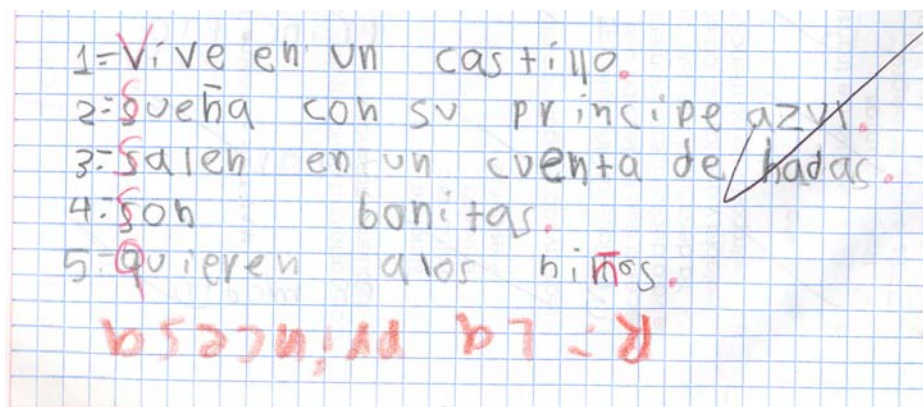 1=Vive en un castillo.
2=Sueña con su principe azul.
3=Salen en un cuenta de hadas.
4=Son bonitas.
5=Quieren alos niños.
R= La princesa